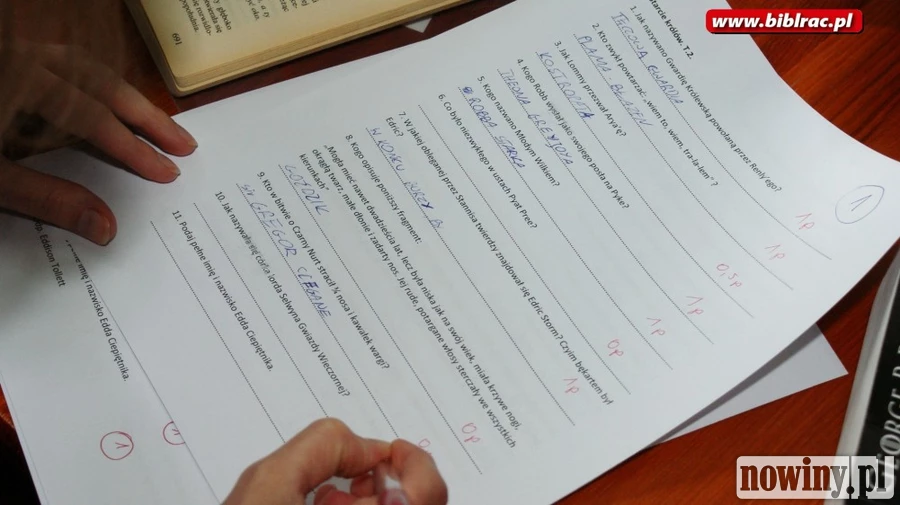 www.biblrac.pl
691
tarcie królów. T.2.
1
1. Jak nazywano Gwardię Królewską powołaną przez Renly'ego?
TĘCZOWA GWARDIA
1p
2. Kto zwykł powtarzać: „wiem to, wiem, tra-la-lem"?
PLAMA BŁAZEN
1p
3. Jak Lommy przezwał Arya'ę?
KOSTROPATA
0,5p
4. Kogo Robb wysłał jako swojego posła na Pyke?
THEONA GREYJOYA
1p
5. Kogo nazwano Młodym Wilkiem?
ROBBA STARKA
1p
6. Co było niezwykłego w ustach Pyat Pree?
0p
7. W jakiej obleganej przez Stannisa twierdzy znajdował się Edric Storm? Czyim bękartem był
Edric?
1p
8. Kogo opisuje poniższy fragment:
„Mogła mieć nawet dwadzieścia lat, lecz była niska jak na swój wiek, miała krzywe nogi,
okrągłą twarz, małe dłonie i zadarty nos. Jej rude, potargane włosy sterczały we wszystkich
kierunkach"
GOŹDZIK
0p
9. Kto w bitwie o Czarny Nurt stracił ¾ nosa i kawałek wargi?
GREGOR CLEGANE
10. Jak nazywała się córka lorda Selwyna Gwiazdy Wieczornej?
11. Podaj pełne imię i nazwisko Edda Cierpiętnika.
imię i nazwisko Edda Cierpiętnika.
dp. Eddison Tollett
1
1
nowiny.pl